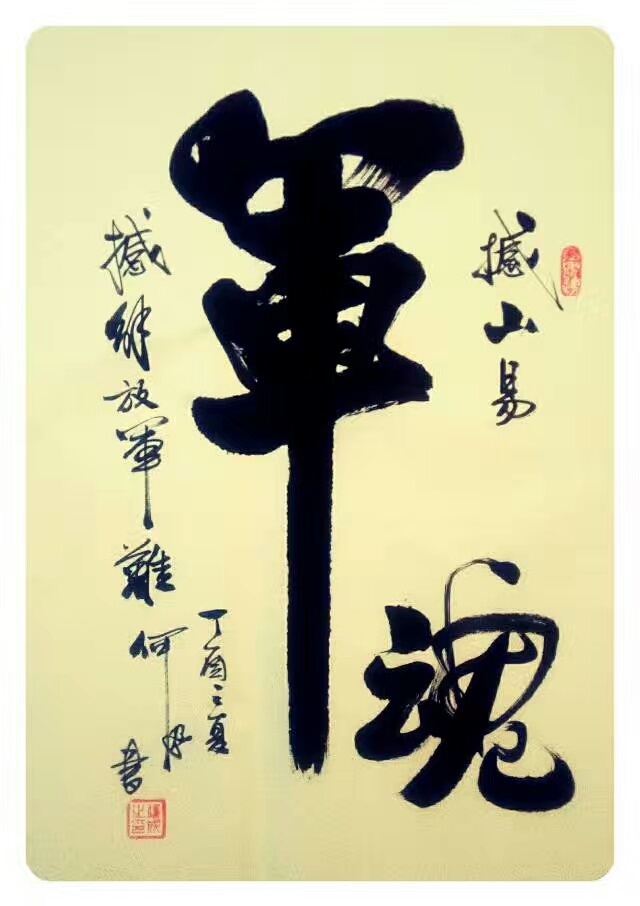 軍魂
撼山易
撼解放軍難
丁酉之夏
何
書